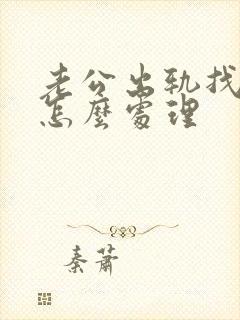 老公出轨找
怎麼處理
秦蕭